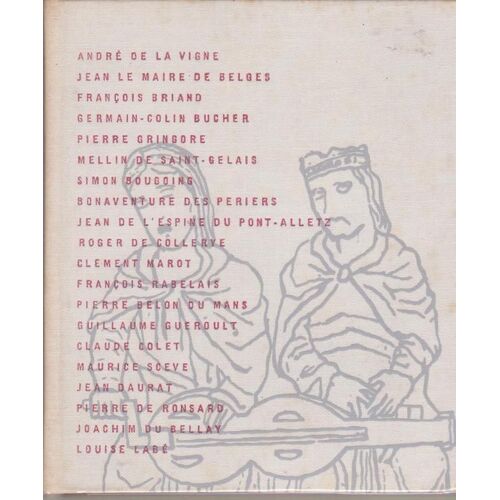 ANDRÉ DE LA VIGNE
JEAN LE MAIRE DE BELGES
FRANÇOIS BRIAND
GERMAIN-COLIN BUCHER
PIERRE GRINGORE
MELLIN DE SAINT-GELAIS
SIMON BOUGOING
BONAVENTURE DES PERIERS
JEAN DE L'ESPINE DU PONT-ALLETZ
ROGER DE COLLERYE
CLEMENT MAROT
FRANÇOIS RABELAIS
PIERRE BELON DU MANS
GUILLAUME GUEROULT
CLAUDE COLET
MAURICE SCEVE
JEAN DAURAT
PIERRE DE RONSARD
JOACHIM DU BELLAY
LOUISE LABÉ